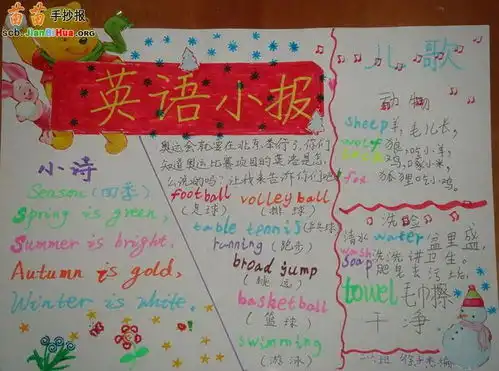 苗苗手抄报
scb.JianBiHua.ORG
英语小报
小诗
Season(四季)
Spring is green,
Summer is bright.
Autumn is gold,
Winter is white.
奥运会就要在北京举行了,你们
知道奥运比赛项目的英语是怎
么说的吗?让我来告诉你们吧!
football
(足球)
volleyball
(排球)
table tennis(乒乓球)
running(跑步)
broad jump
(跳远)
basketball
(篮球)
swimming
(游泳)
儿歌
动物
sheep羊,毛儿长,
wolf狼,吃小羊,
鸡,吃小米,
fox狐狸吃小鸡。
洗脸
清水water盆里盛,
wash洗洗讲卫生。
soap肥皂去污垢,
towel毛巾擦
干净